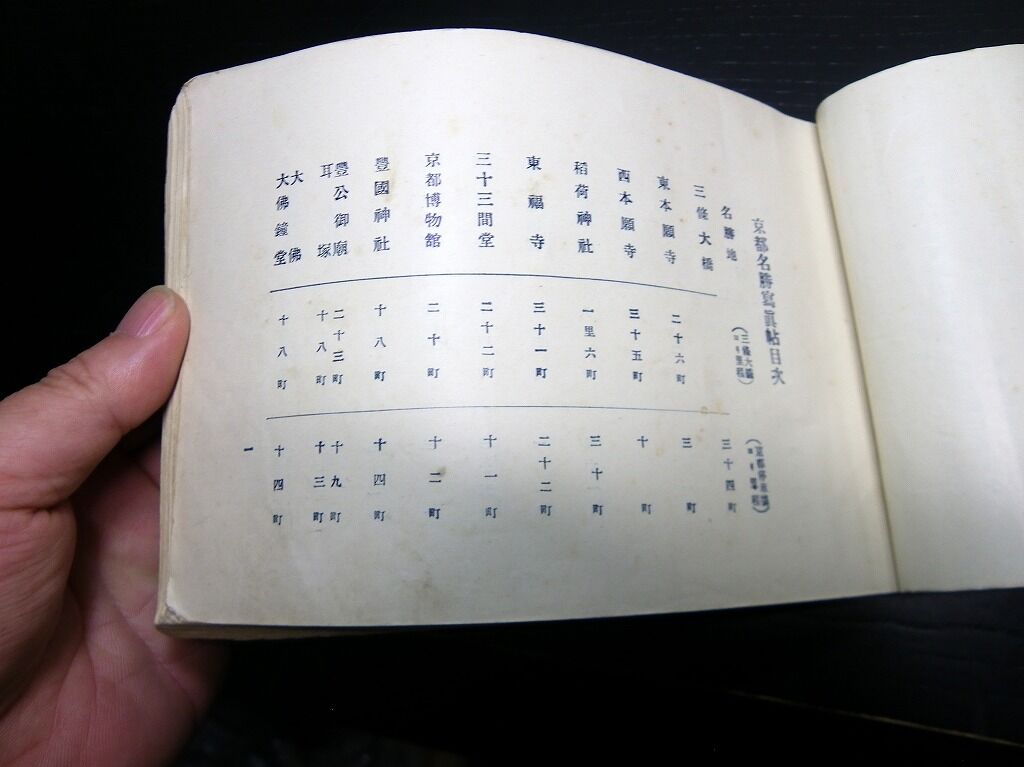 京都名勝寫眞帖目次
名勝地 （三條大橋ヨリ里程） （京都停車塲ヨリ里程）
三條大橋 三十四町
東本願寺 二十六町 三町
西本願寺 三十五町 十町
稻荷神社 一里六町 三十町
東福寺 三十一町 二十二町
三十三間堂 二十二町 十一町
京都博物館 二十町 十二町
豐國神社 十八町 十四町
豐公御廟 二十三町 十九町
耳塚 十八町 十三町
大佛
大佛鐘堂 十八町 十四町
一